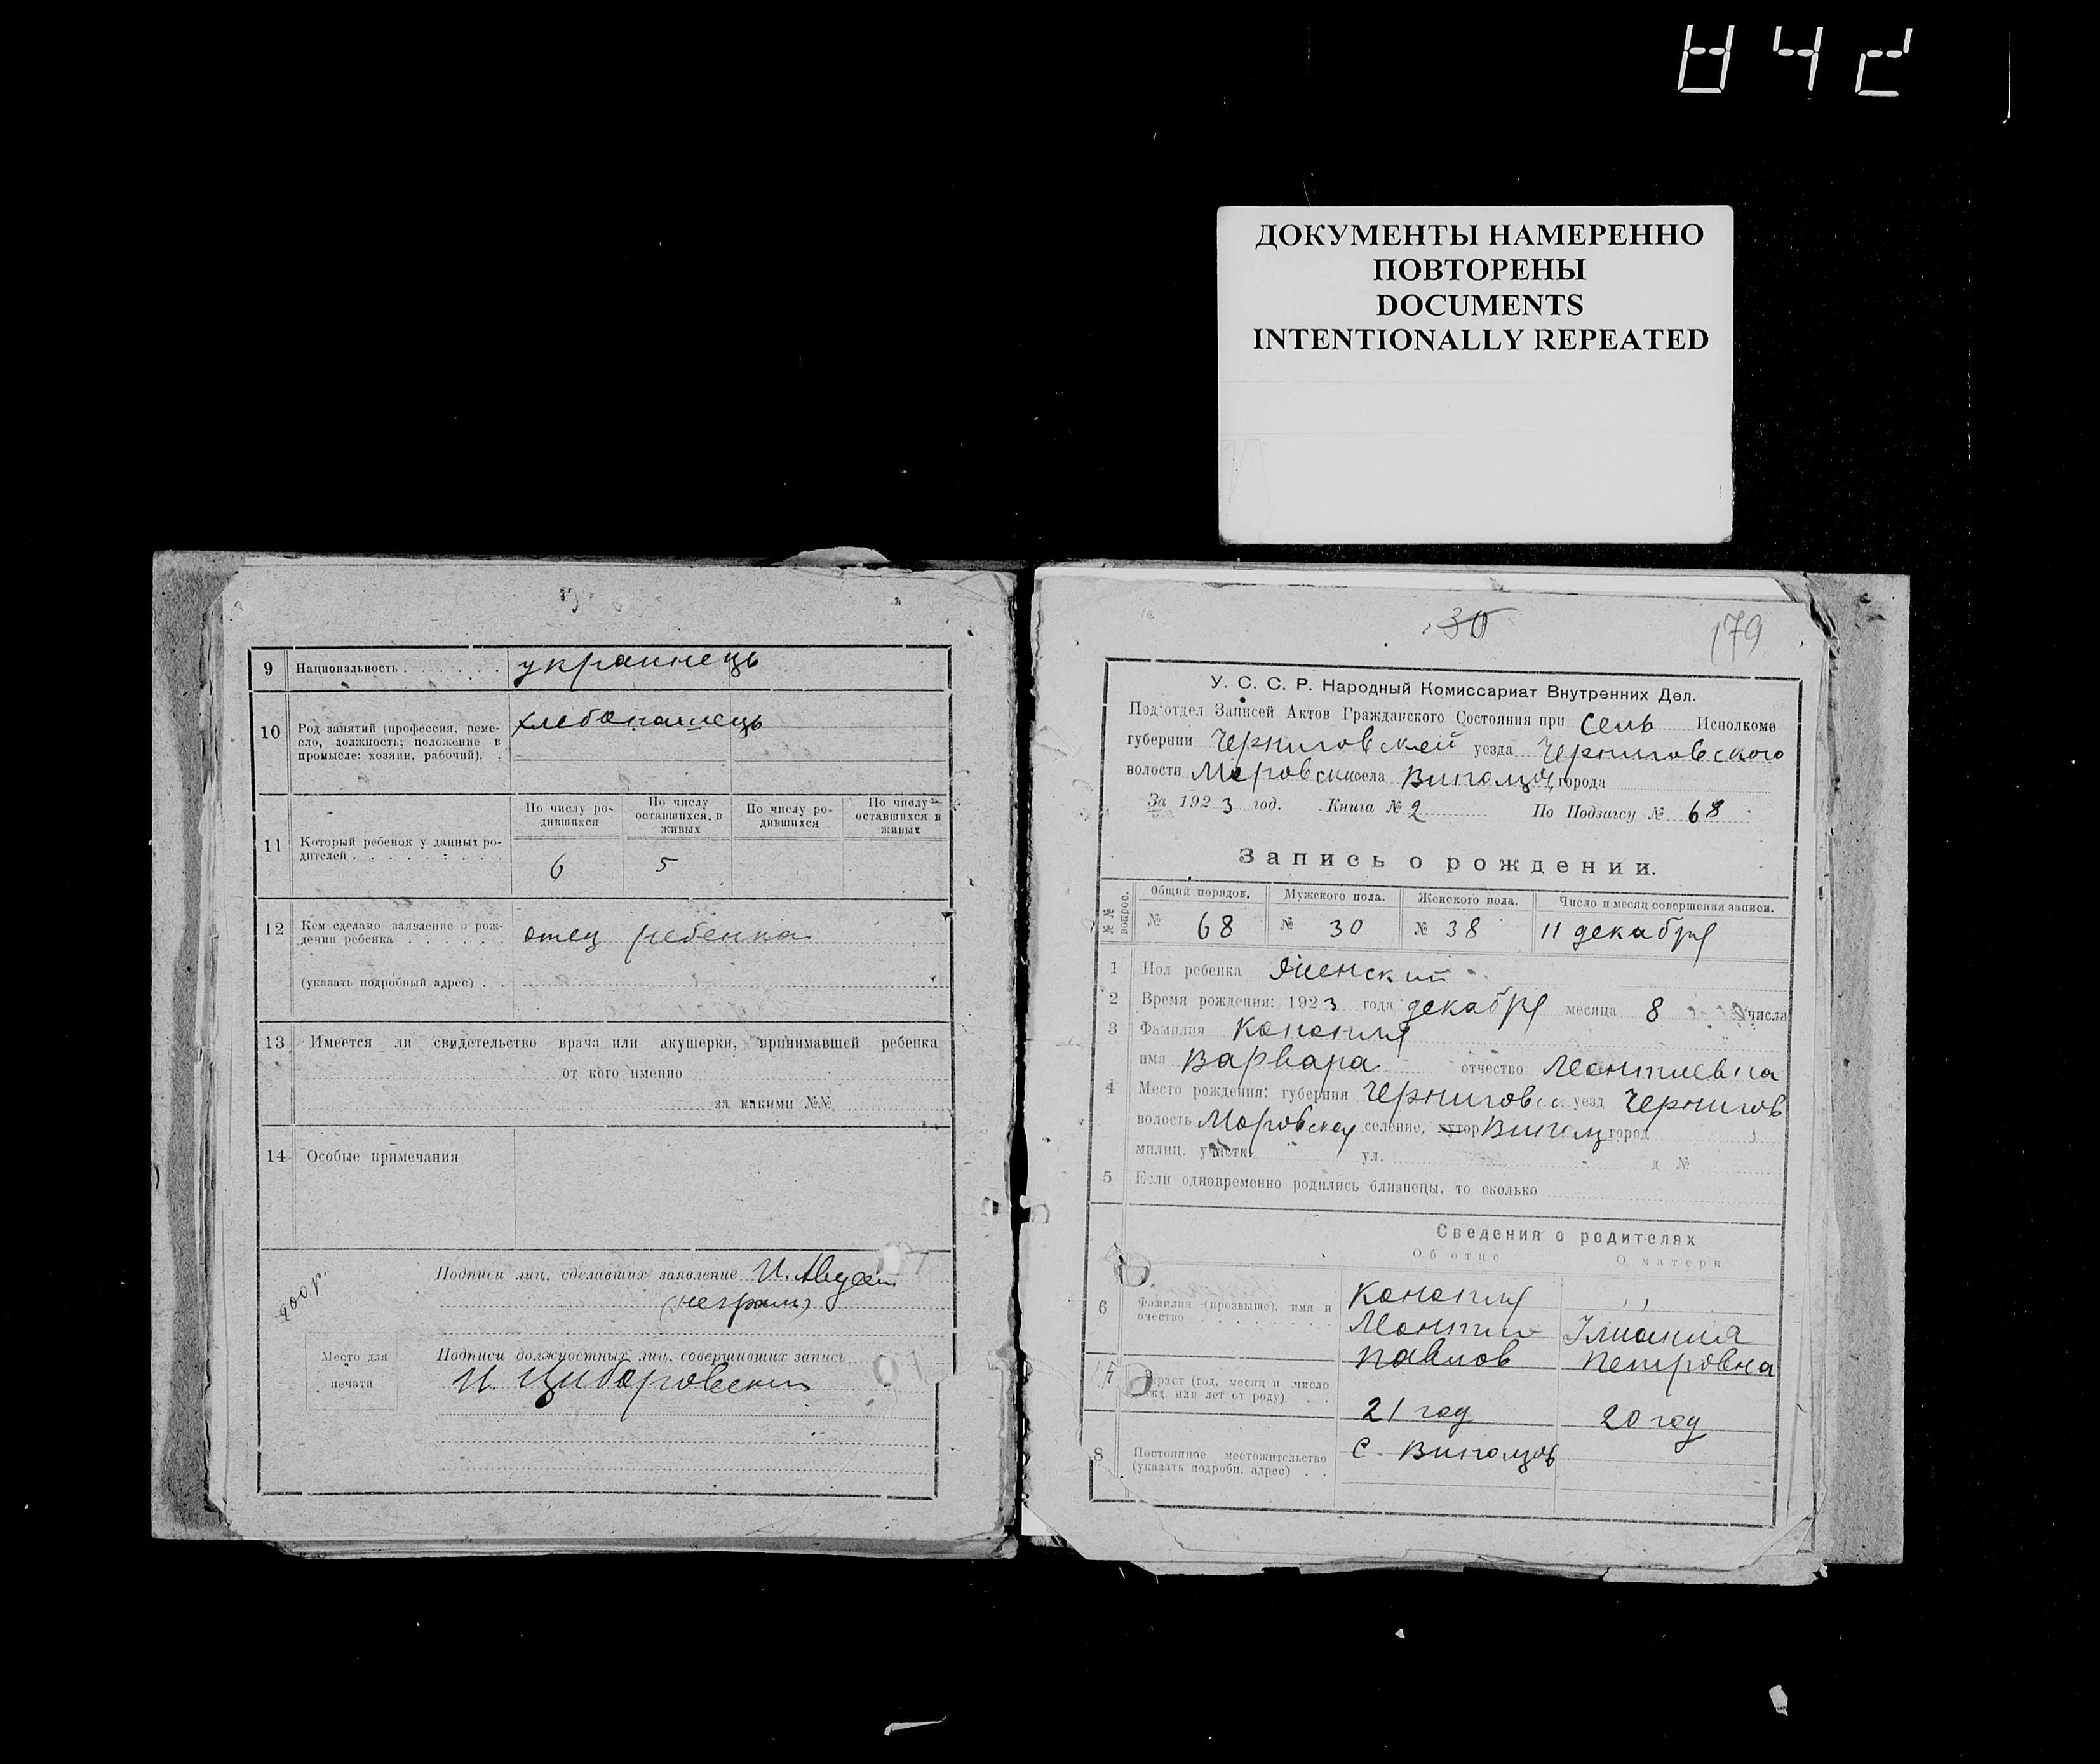 842
ДОКУМЕНТЫ НАМЕРЕННО
ПОВТОРЕНЫ
DOCUMENTS
INTENTIONALLY REPEATED
9 Национальность украинець
10 Род занятий (профессия, реме-
сло, должность; положение в
промысле: хозяин, рабочий).
хлебопашець
11 Который ребенок у данных ро-
дителей
По числу ро-
дившихся
По числу
оставшихся в
живых
По числу ро-
дившихся
По числу
оставшихся в
живых
6 5
12 Кем сделано заявление о рож-
дении ребенка отец ребенка
(указать подробный адрес)
13 Имеется ли свидетельство врача или акушерки, принимавшей ребенка
от кого именно
за какими №№
14 Особые примечания
Подписи лиц, сделавших заявление И.
(неграм)
Место для
печати
Подписи должностных лиц, совершивших запись
И.
30
179
У. С. С. Р. Народный Комиссариат Внутренних Дел.
Под'отдел Записей Актов Гражданского Состояния при Сель Исполкоме
губернии Черниговской уезда Черниговского
волости села города
За 1923 год. Книга № 2 По Подзагсу № 68
Запись о рождении.
№№ вопрос.
Общий порядок. Мужского пола. Женского пола. Число и месяц совершения записи.
№ 68 № 30 № 38 11 декабря
1 Пол ребенка женский
2 Время рождения: 1923 года декабря месяца 8 числа
3 Фамилия Конопля
имя Варвара отчество Леонтиевна
4 Место рождения: губерния уезд Чернигов
волость селение, хутор город
милиц. участк. ул. д №
5 Если одновременно родились близнецы, то сколько
Сведения о родителях
Об отце О матери
6 Фамилия (прозвыше), имя и
очество
Конопля ,,
Леонтий
Павлов Петровна
7 Возраст (год, месяц и число
рожд. или лет от роду)
21 год 20 год
8 Постоянное местожительство
(указать подробн. адрес)
с.